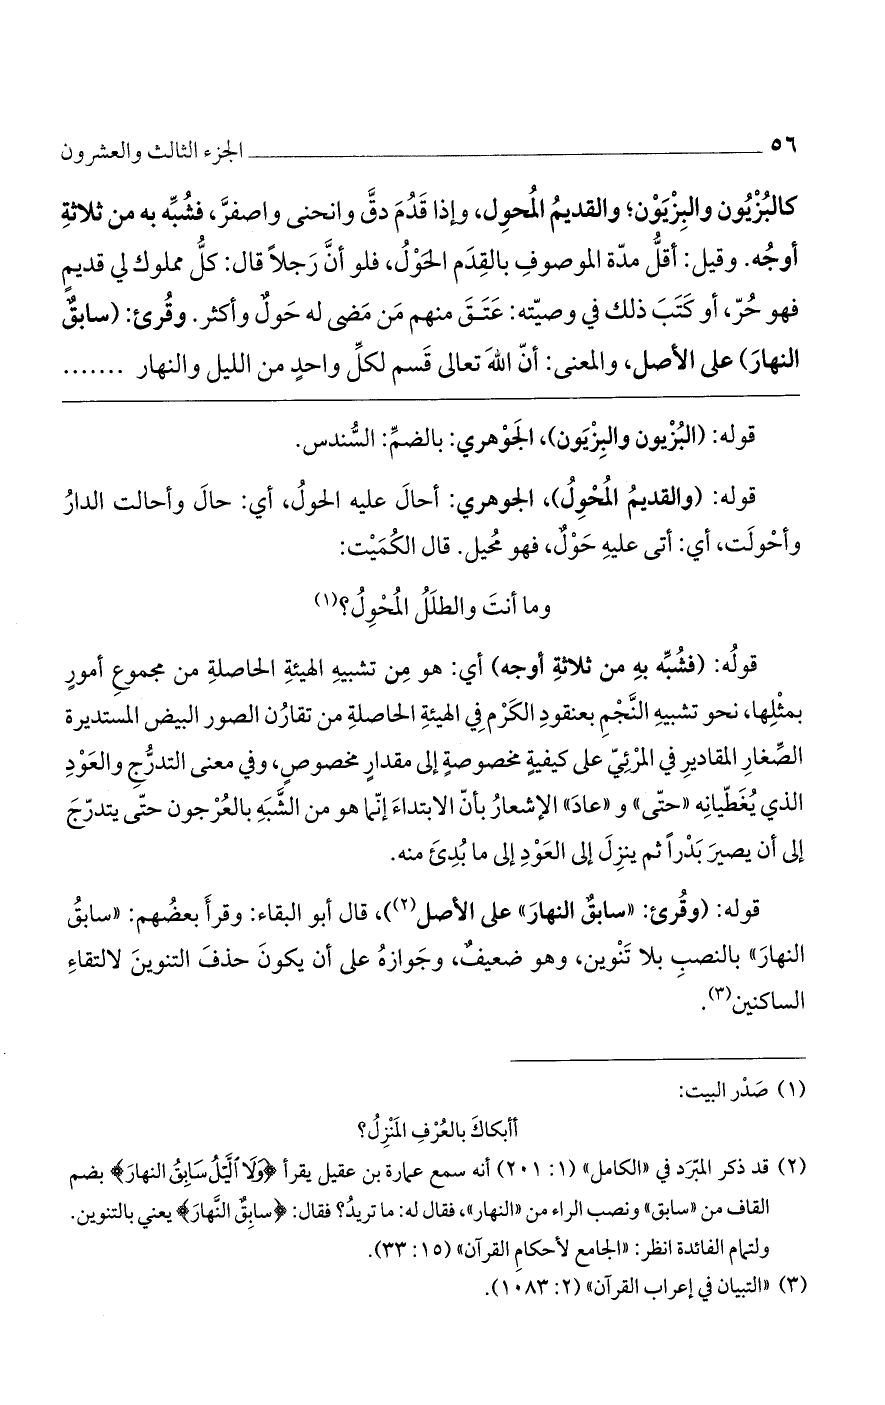 ٥٦ ــــــــــــــــ الجزء الثالث والعشرون
كالبُزْيُون والبِزْيَوْن؛ والقديمُ المُحوِل، وإذا قَدُمَ دقَّ وانحنى واصفرَّ، فشُبِّه به من ثلاثةِ
أوجُه. وقيل: أقلُّ مدّة الموصوفِ بالقِدَم الحَوْلُ، فلو أنَّ رَجلاً قال: كلُّ مملوك لي قديمٍ
فهو حُرّ، أو كَتَبَ ذلك في وصيّته: عَتَـقَ منهم مَن مَضى له حَولٌ وأكثر. وقُرئ: (سابقٌ
النهارَ) على الأصل، والمعنى: أنّ اللهَ تعالى قَسم لكلِّ واحدٍ من الليل والنهار .......
قوله: (البُزْيون والبِزْيَون)، الجَوْهري: بالضمِّ: السُّندس.
قوله: (والقديمُ المُحْوِلُ)، الجوهري: أحالَ عليه الحولُ، أي: حالَ وأحالت الدارُ
وأحْولَت، أي: أتى عليهِ حَوْلٌ، فهو مُحيل. قال الكُمَيْت:
وما أنتَ والطلَلُ المُحْوِلُ؟(١)
قولُه: (فشُبِّه بهِ من ثلاثةِ أوجه) أي: هو مِن تشبيهِ الهيئةِ الحاصلةِ من مجموعِ أمورٍ
بمثْلِها، نحو تشبيهِ النَّجْمِ بعنقودِ الكَرْم في الهيئةِ الحاصلةِ من تقارُن الصور البيض المستديرة
الصِّغارِ المقاديرِ في المرْئِيّ على كيفيةٍ مخصوصةٍ إلى مقدارٍ مخصوصٍ، وفي معنى التدرُّجِ والعَوْدِ
الذي يُغَطِّيانِه «حتّى» و «عادَ» الإشعارُ بأنّ الابتداءَ إنّما هو من الشَّبَهِ بالعُرْجون حتّى يتدرّجَ
إلى أن يصيرَ بَدْراً ثم ينزِلَ إلى العَوْدِ إلى ما بُدِئَ منه.
قوله: (وقُرئ: «سابقٌ النهارَ» على الأصل(٢))، قال أبو البقاء: وقرأَ بعضُهم: «سابقُ
النهارَ» بالنصبِ بلا تَنْوين، وهو ضعيفٌ، وجَوازهُ على أن يكونَ حذفَ التنوينَ لالتقاءِ
الساكنين(٣).
(١) صَدْر البيت:
أأبكاكَ بالعُرْفِ المَنْزِلُ؟
(٢) قد ذكر المبّرَد في «الكامل» (١: ٢٠١) أنه سمع عمارة بن عقيل يقرأ ﴿وَلَا ٱلَّيْلُ سَابِقُ النهارَ﴾ بضم
القاف من «سابق» ونصب الراء من «النهار»، فقال له: ما تريدُ؟ فقال: ﴿سابِقٌ النَّهارَ﴾ يعني بالتنوين.
ولتمام الفائدة انظر: «الجامع لأحكامِ القرآن» (١٥: ٣٣).
(٣) «التبيان في إعراب القرآن» (٢: ١٠٨٣).